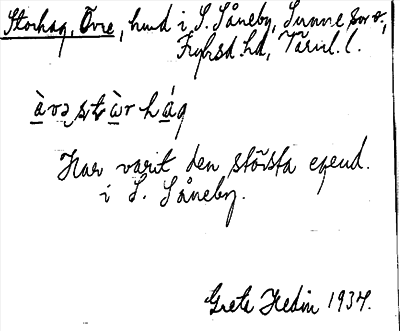 Storhag, Övre, hmd i S. Såneby, Sunne sn,
Fryksd. hd, Värml. l.
àvə stὼr hág
Har varit den största egend.
i S. Såneby.
Greta Hedin 1934.